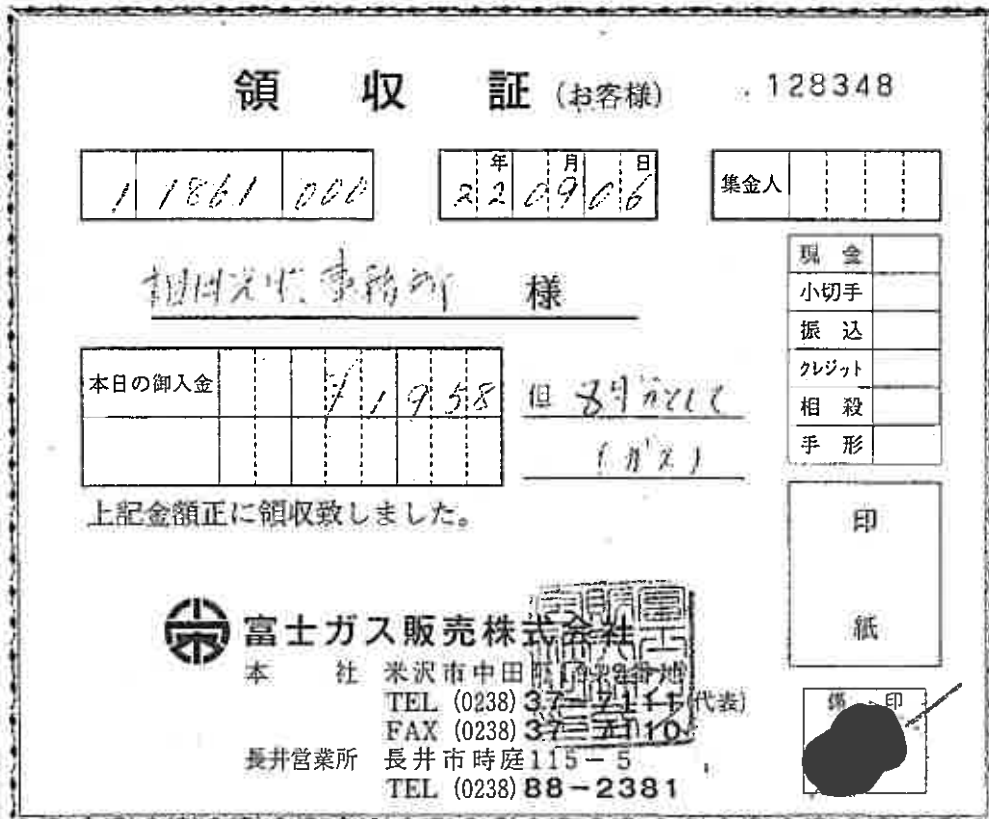 領収証(お客様) 128348
1 1861 000
年 月 日
22 09 06
集金人
相田光照事務所 様
現金
小切手
振込
クレジット
相殺
手形
本日の御入金 ¥1958
但 8月分として
(ガス)
上記金額正に領収致しました。
印
紙
富士ガス販売株式会社
本社 米沢市中田町
TEL (0238) 37-7111(代表)
FAX (0238) 37-7110
長井営業所 長井市時庭115-5
TEL (0238) 88-2381
印